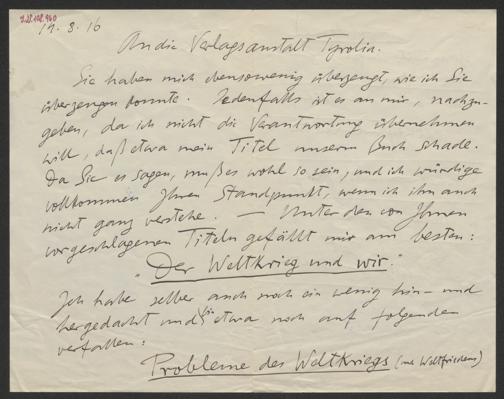 19. 3. 16
An die Verlagsanstalt Tyrolia.
Sie haben mich ebensowenig überzeugt, wie ich Sie
überzeugen konnte. Jedenfalls ist es an mir, nachzu-
geben, da ich nicht die Verantwortung übernehmen
will, daß etwa mein Titel unserm Buch schade.
Da Sie es sagen, muß es wohl so sein, und ich würdige
vollkommen Ihren Standpunkt, wenn ich ihn auch
nicht ganz verstehe. — Unter den von Ihnen
vorgeschlagenen Titeln gefällt mir am besten:
"Der Weltkrieg und wir."
Ich habe selber auch noch ein wenig hin- und
hergedacht und etwa noch auf folgenden
verfallen:
Probleme des Weltkriegs (und Weltfriedens)